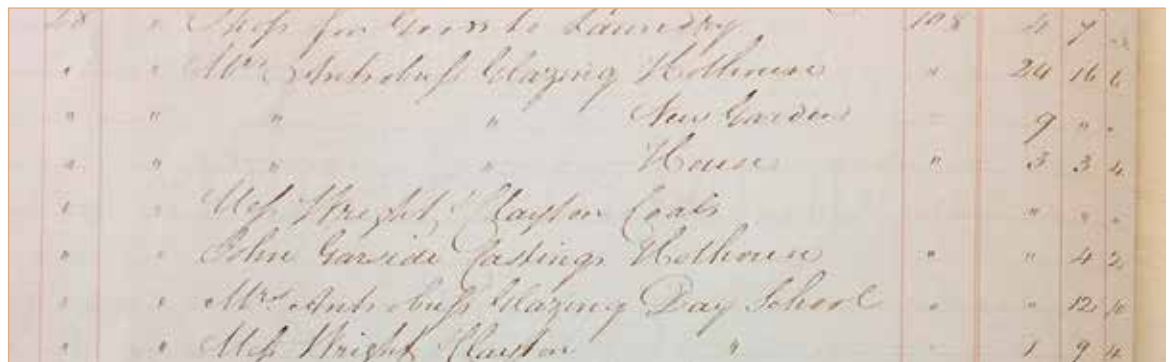 28 " Shop for Goods to Laundry 108 4 7
" " Mrs Antrobuss Glazing Hothouse " 24 16 6
" " " " New Garden " 9 " "
" " " " House " 3 3 4
" " Mess Wright, Clayton Coals " " "
" " John Garside Castings Hothouse " " 4 2
" " Mrs Antrobuss Glazing Day School " " 12 10
" " Mess Wright, Clayton " 1 9 4